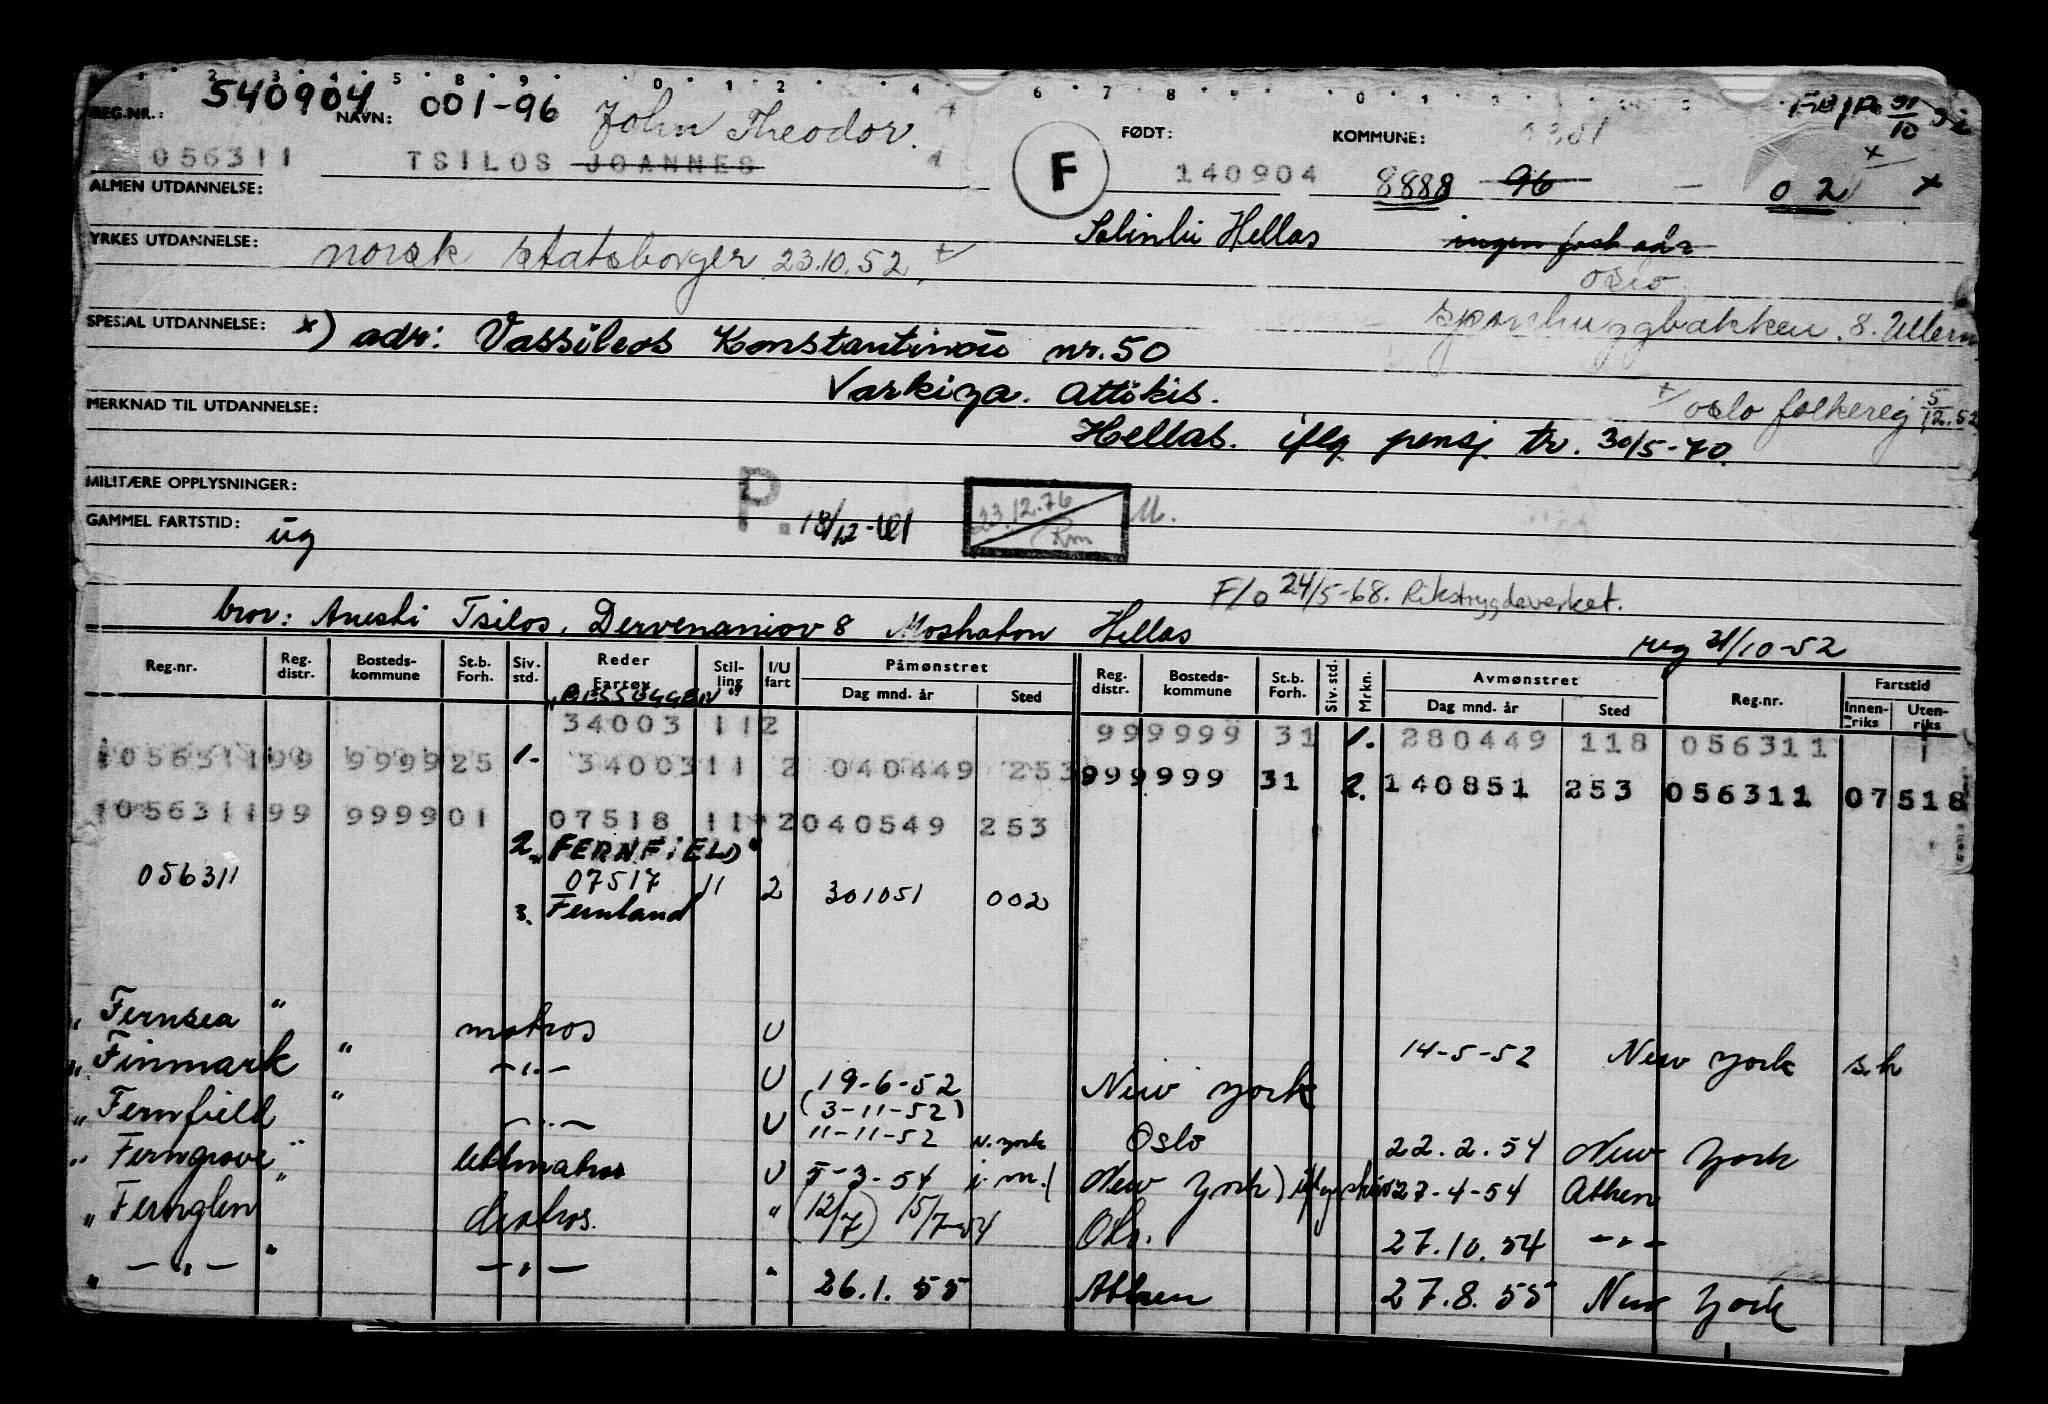 2 3 4 5 8 9 0 1 2 4 6 7 8 9 0 1 2
REG.NR.: 540904 NAVN: 001-96 John Theodor. FØDT: KOMMUNE: 0301
056311 TSILOS JOANNES F 140904 8888 96 - 02 x
ALMEN UTDANNELSE:
Hellas ingen fast adr
YRKES UTDANNELSE: norsk statsborger 23.10.52
oslo
sponhuggbakken. 8. Ullern
SPESIAL UTDANNELSE: x) adr: Vassileos Konstantinou nr. 50
Varkiza. Attikis. oslo folkereg 5/12.52
MERKNAD TIL UTDANNELSE:
Hellas. iflg pensj tr. 30/5-70.
MILITÆRE OPPLYSNINGER: P. 23.12.76 M.
GAMMEL FARTSTID: ug
F/o 24/5-68. Rikstrygdeverket.
bror: Anesti Tsilos, Dervenanion 8 Moshaton Hellas
reg 31/10-52
Reg.nr. Reg. distr. Bosteds- kommune St.b. Forh. Siv. std. Reder Fartøy Stil- ling I/U fart Påmønstret Dag mnd. år Sted Reg. distr. Bosteds- kommune St.b. Forh. Siv. std. Mrkn. Avmønstret Dag mnd. år Sted Reg.nr. Fartstid Innen- riks Uten- riks
"BESSEGGEN"
34003 11 2 999999 31 1. 280449 118 056311
1056311 99 9999 25 1. 34003 11 2 040449 253 999999 31 2. 140851 253 056311 07518
1056311 99 9999 01 07518 11 2 040549 253
2. "FERNFIELD"
056311 07517 11 2 301051 002
3. Fernland
" Fernsea " matros U 14-5-52 New York s.h
" Finmark " -"- U 19-6-52 New York
" Fernfield " -"- U (3-11-52) 11-11-52 N. york Oslo 22.2.54 New York
" Ferngrove " lettmatros U 5-3-54 i.m. (New York) 27-4-54 Athen
" Fernglen " matros. " (12/7) 15/7-54 27.10.54 -"-
" -"- " -"- " 26.1.55 Athen 27.8.55 New York